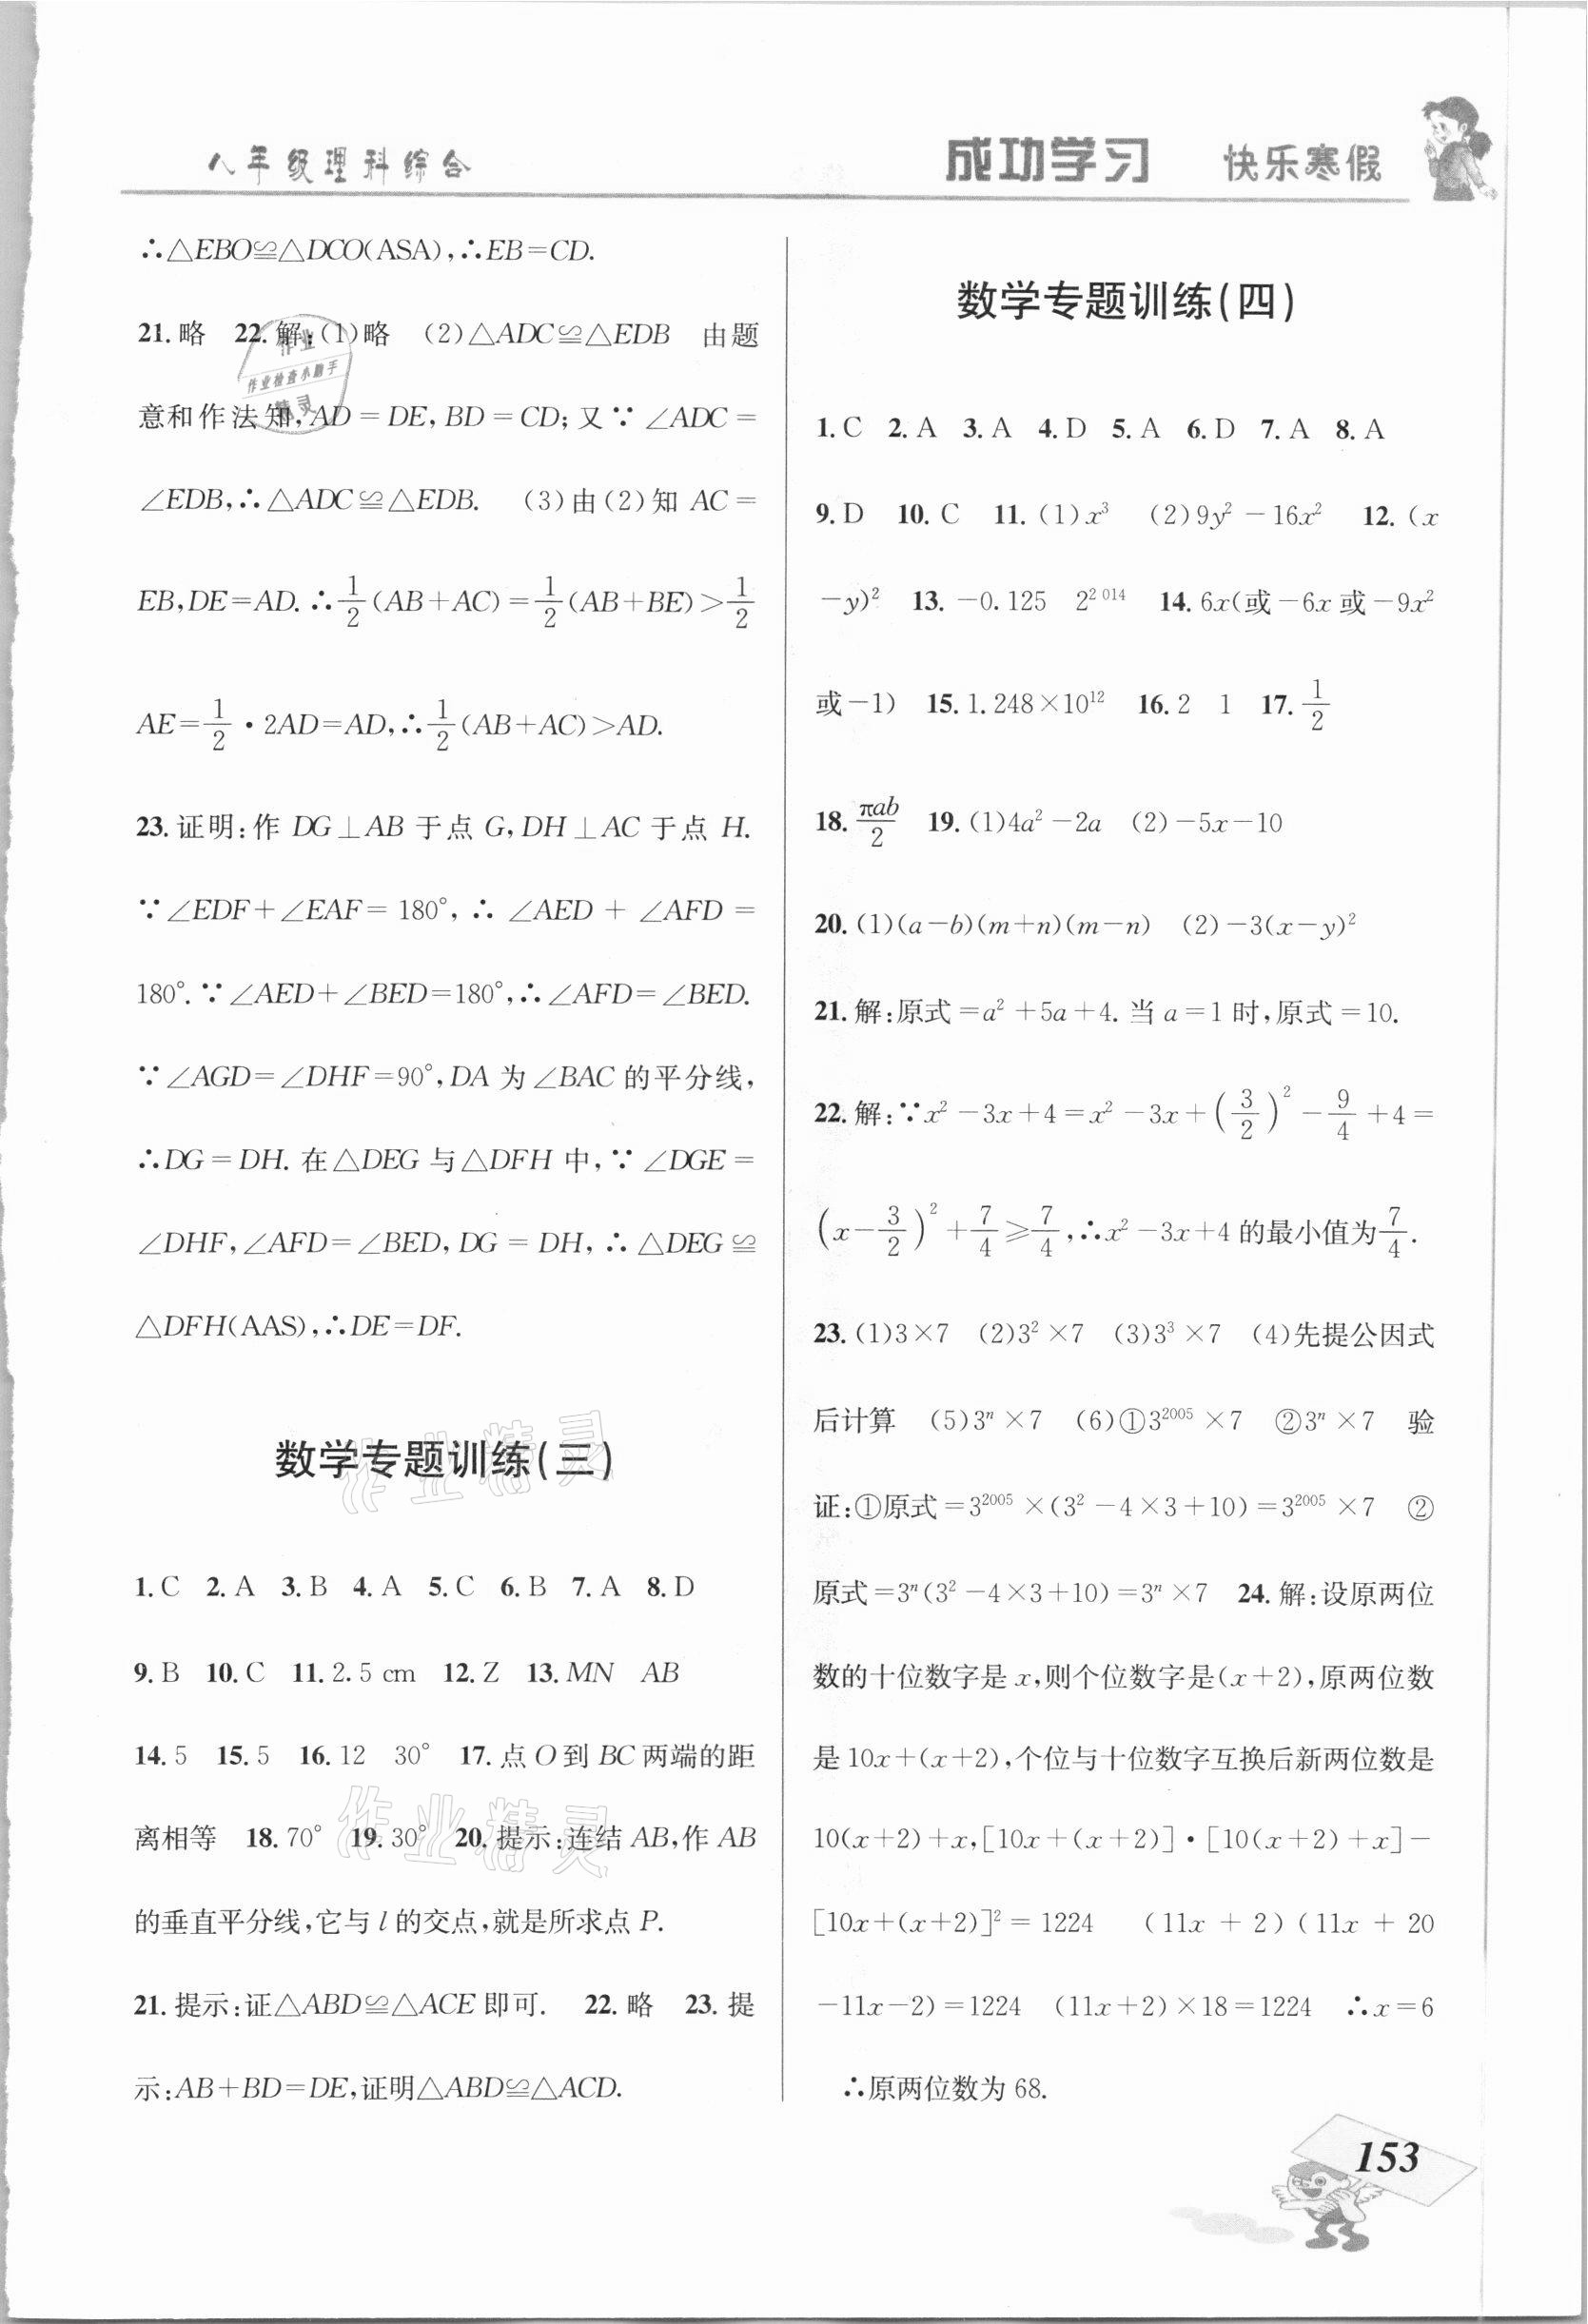 八年级理科综合
成功学习 快乐寒假
∴△EBO≌△DCO(ASA),∴EB=CD.
21.略 22.解:(1)略 (2)△ADC≌△EDB 由题
意和作法知,AD=DE,BD=CD;又∵∠ADC=
∠EDB,∴△ADC≌△EDB. (3)由(2)知 AC=
EB,DE=AD.∴1/2(AB+AC)=1/2(AB+BE)>1/2
AE=1/2·2AD=AD,∴1/2(AB+AC)>AD.
23.证明:作 DG⊥AB 于点 G,DH⊥AC 于点 H.
∵∠EDF+∠EAF=180°,∴∠AED+∠AFD=
180°.∵∠AED+∠BED=180°,∴∠AFD=∠BED.
∵∠AGD=∠DHF=90°,DA 为∠BAC 的平分线,
∴DG=DH.在△DEG 与△DFH 中,∵∠DGE=
∠DHF,∠AFD=∠BED,DG=DH,∴△DEG≌
△DFH(AAS),∴DE=DF.
数学专题训练(三)
1.C 2.A 3.B 4.A 5.C 6.B 7.A 8.D
9.B 10.C 11.2.5 cm 12.Z 13.MN AB
14.5 15.5 16.12 30° 17.点 O 到 BC 两端的距
离相等 18.70° 19.30° 20.提示:连结 AB,作 AB
的垂直平分线,它与 l 的交点,就是所求点 P.
21.提示:证△ABD≌△ACE 即可. 22.略 23.提
示:AB+BD=DE,证明△ABD≌△ACD.
数学专题训练(四)
1.C 2.A 3.A 4.D 5.A 6.D 7.A 8.A
9.D 10.C 11.(1)x³ (2)9y²-16x² 12.(x
-y)² 13.-0.125 2²⁰¹⁴ 14.6x(或-6x 或-9x²
或-1) 15.1.248×10¹² 16.2 1 17.1/2
18.πab/2 19.(1)4a²-2a (2)-5x-10
20.(1)(a-b)(m+n)(m-n) (2)-3(x-y)²
21.解:原式=a²+5a+4.当 a=1 时,原式=10.
22.解:∵x²-3x+4=x²-3x+(3/2)²-9/4+4=
(x-3/2)²+7/4≥7/4,∴x²-3x+4 的最小值为7/4.
23.(1)3×7 (2)3²×7 (3)3³×7 (4)先提公因式
后计算 (5)3ⁿ×7 (6)①3²⁰⁰⁵×7 ②3ⁿ×7 验
证:①原式=3²⁰⁰⁵×(3²-4×3+10)=3²⁰⁰⁵×7 ②
原式=3ⁿ(3²-4×3+10)=3ⁿ×7 24.解:设原两位
数的十位数字是 x,则个位数字是(x+2),原两位数
是 10x+(x+2),个位与十位数字互换后新两位数是
10(x+2)+x,[10x+(x+2)]·[10(x+2)+x]-
[10x+(x+2)]²=1224 (11x+2)(11x+20
-11x-2)=1224 (11x+2)×18=1224 ∴x=6
∴原两位数为 68.
153
作业
作业检查小助手
精灵
作业精灵
作业精灵